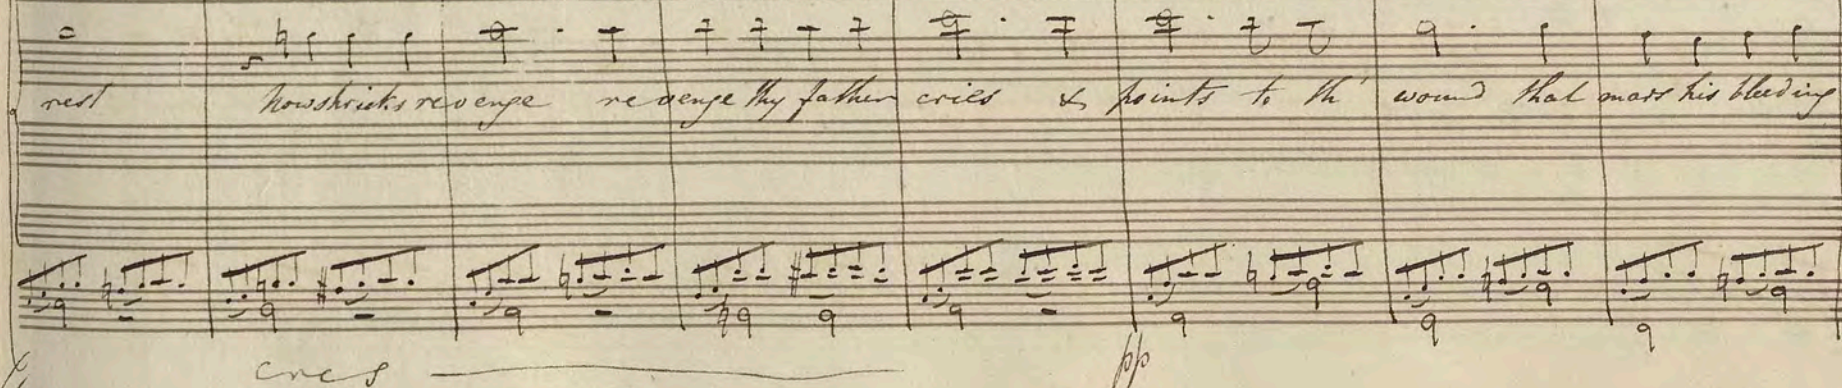 rest how shrieks revenge revenge thy father cries & points to th' wound that mars his bleeding
cres pp